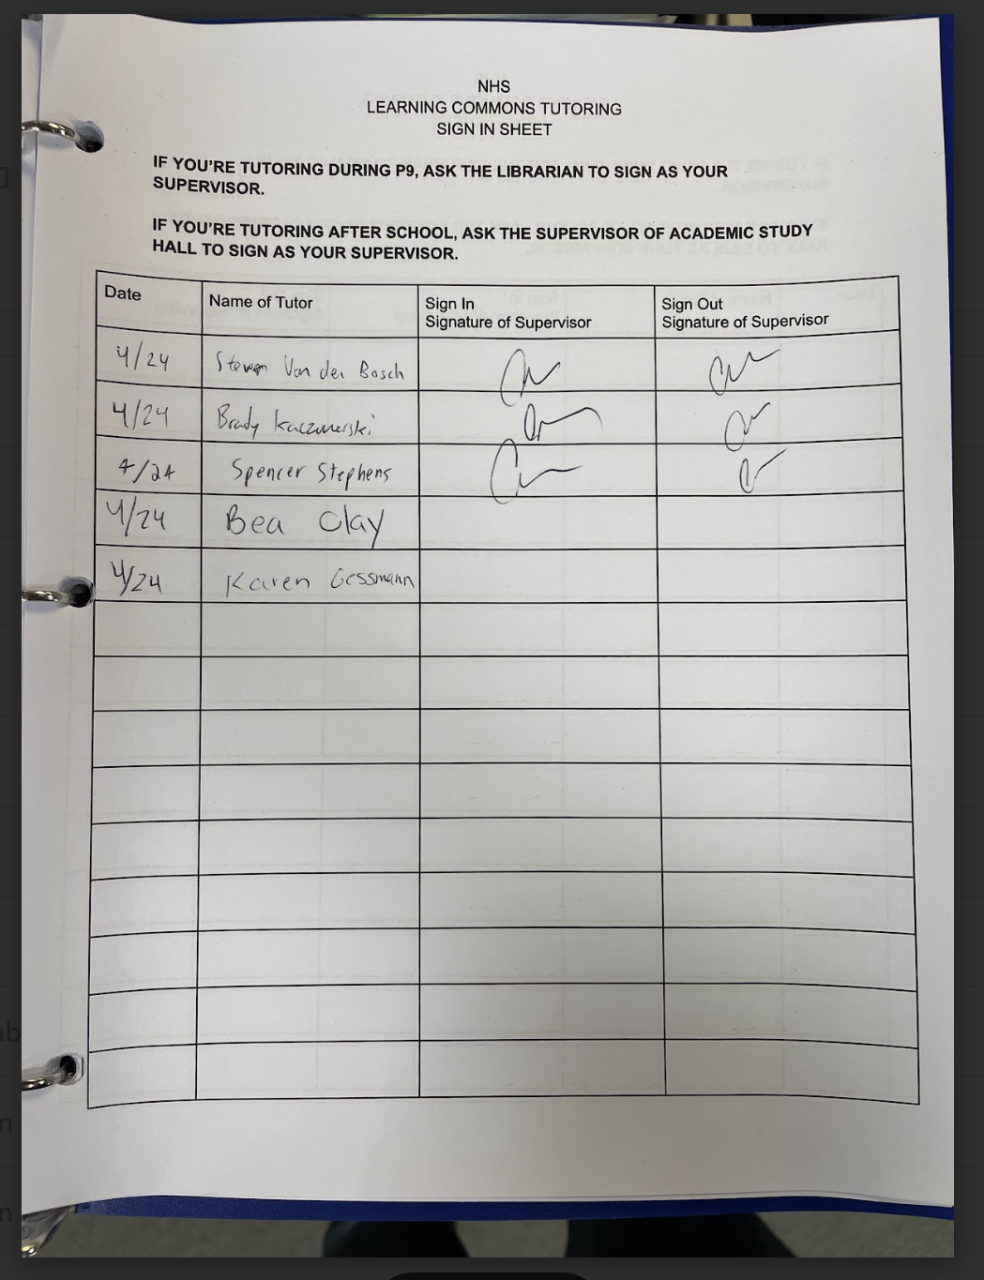 NHS
LEARNING COMMONS TUTORING
SIGN IN SHEET
IF YOU'RE TUTORING DURING P9, ASK THE LIBRARIAN TO SIGN AS YOUR
SUPERVISOR.
IF YOU'RE TUTORING AFTER SCHOOL, ASK THE SUPERVISOR OF ACADEMIC STUDY
HALL TO SIGN AS YOUR SUPERVISOR.
Date Name of Tutor Sign In Sign Out
Signature of Supervisor Signature of Supervisor
4/24 Steven Van den Bosch
4/24 Brady Kaczmerski
4/24 Spencer Stephens
4/24 Bea Clay
4/24 Karen Gessmann